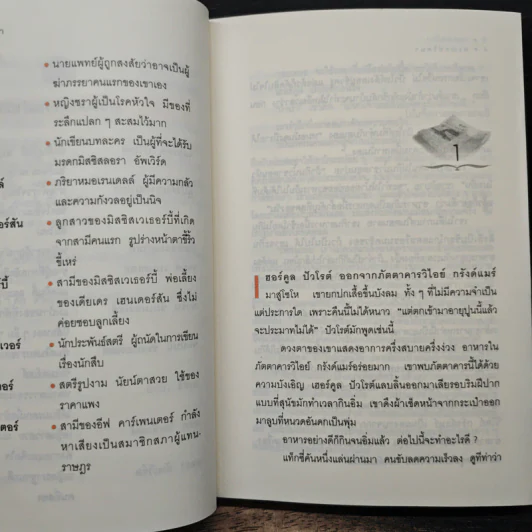 นายแพทย์ผู้ถูกสงสัยว่าอาจเป็นผู้
ฆ่าภรรยาคนแรกของเขาเอง
หญิงชราผู้เป็นโรคหัวใจ มีของที่
ระลึกแปลก ๆ สะสมไว้มาก
นักเขียนบทละคร เป็นผู้ที่จะได้รับ
มรดกมิสซิสลอรา อัพเวิร์ด
ภริยาหมอเรนเดลล์ ผู้มีความกลัว
และความกังวลอยู่เป็นนิจ
ลูกสาวของมิสซิสเวเธอร์บี้ที่เกิด
จากสามีคนแรก รูปร่างหน้าตาขี้ริ้ว
ขี้เหร่
สามีของมิสซิสเวเธอร์บี้ พ่อเลี้ยง
ของเดียเดร เฮนเดอร์สัน ซึ่งไม่
ค่อยชอบลูกเลี้ยง
นักประพันธ์สตรี ผู้ถนัดในการเขียน
เรื่องนักสืบ
สตรีรูปงาม นัยน์ตาสวย ใช้ของ
ราคาแพง
สามีของอีฟ คาร์เพนเตอร์ กำลัง
หาเสียงเป็นสมาชิกสภาผู้แทน-
ราษฎร
1
ฮอร์คูล ปัวโรต์ ออกจากภัตตาคารวิไอย์ กรังด์แมร์
มาสู่โซโห เขายกปกเสื้อขึ้นบังลม ทั้ง ๆ ที่ไม่มีความจำเป็น
แต่ประการใด เพราะคืนนี้ไม่ได้หนาว “แต่ตกเข้ามาอายุปูนนี้แล้ว
จะประมาทไม่ได้” ปัวโรต์มักพูดเช่นนี้
ดวงตาของเขาแสดงอาการครึ่งสบายครึ่งง่วง อาหารใน
ภัตตาคารวิไอย์ กรังด์แมร์อร่อยมาก เขาพบภัตตาคารนี้ได้ด้วย
ความบังเอิญ เฮอร์คูล ปัวโรต์แลบลิ้นออกมาเลียรอบริมฝีปาก
แบบที่สุนัขมักทำเวลากินอิ่ม เขาดึงผ้าเช็ดหน้าจากกระเป๋าออก
มาลูบที่หนวดอันดกเป็นพุ่ม
อาหารอย่างดีก็กินจนอิ่มแล้ว ต่อไปนี้จะทำอะไรดี ?
แท็กซี่คันหนึ่งแล่นผ่านมา คนขับลดความเร็วลง ดูทีท่าว่า